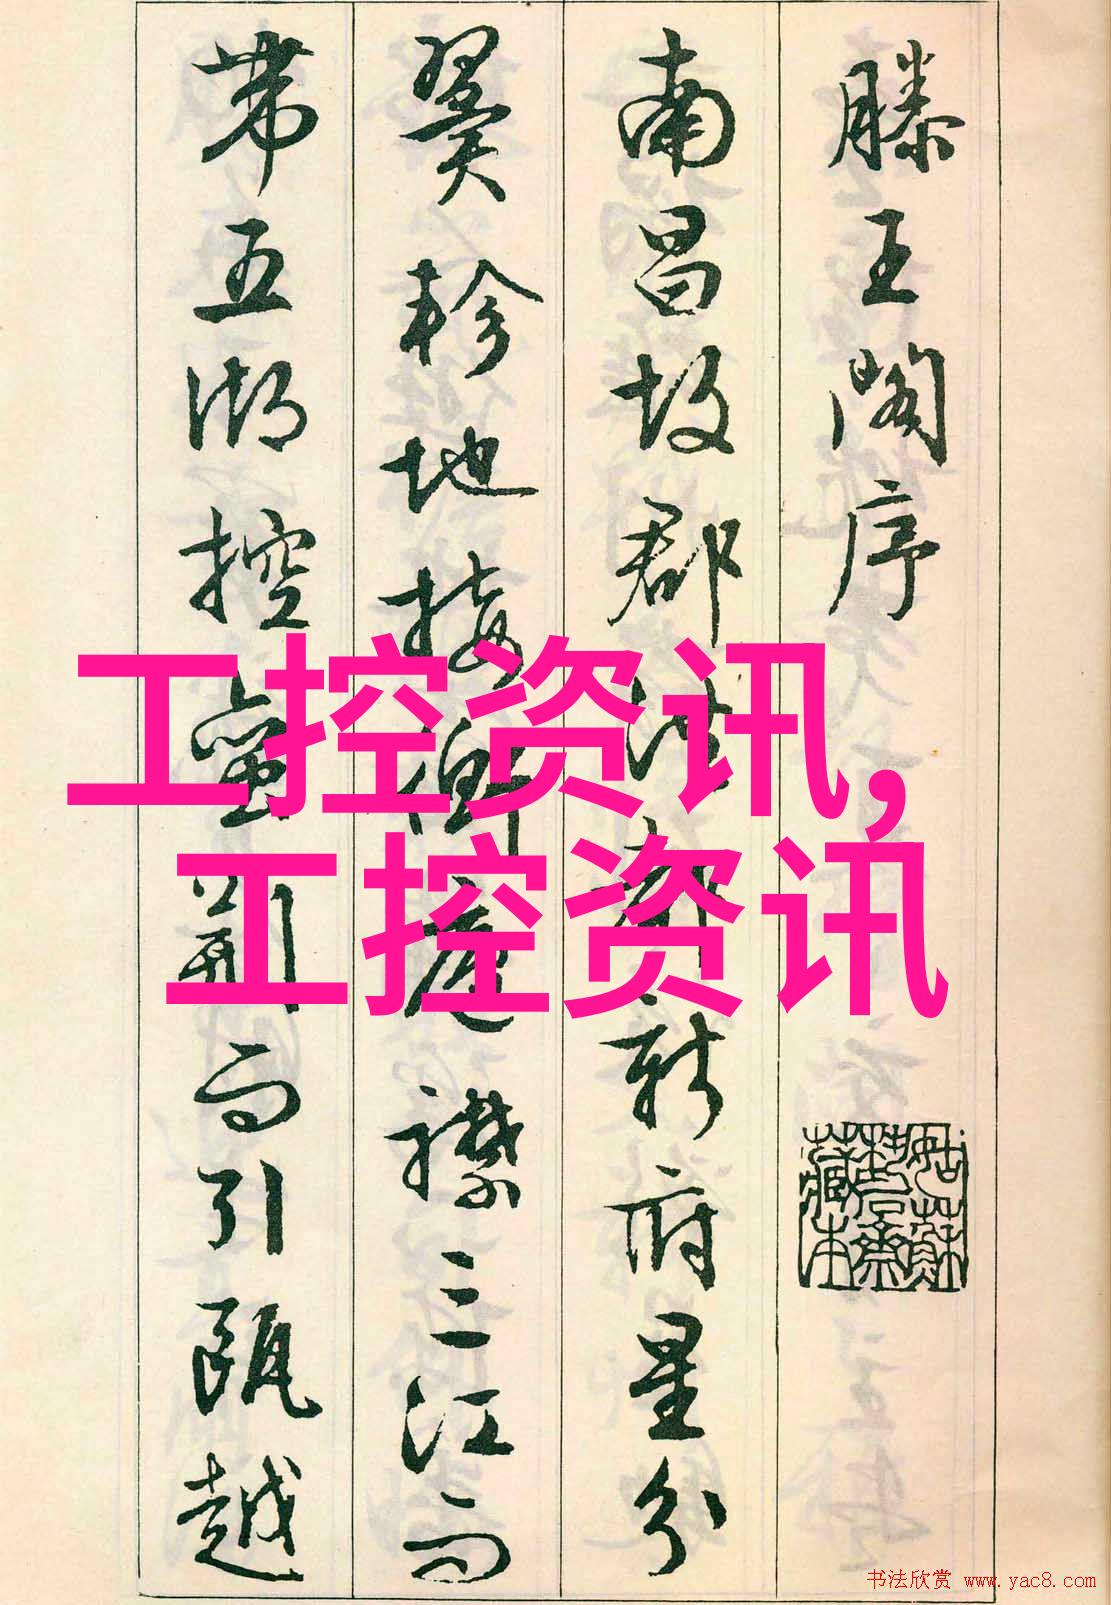 滕王阁序
南昌故郡洪都新府星分
翼轸地接衡庐襟三江而
带五湖控蛮荆而引瓯越
工控资讯,
工控资讯
姑蘇
藏本
书法欣赏 www.yac8.com